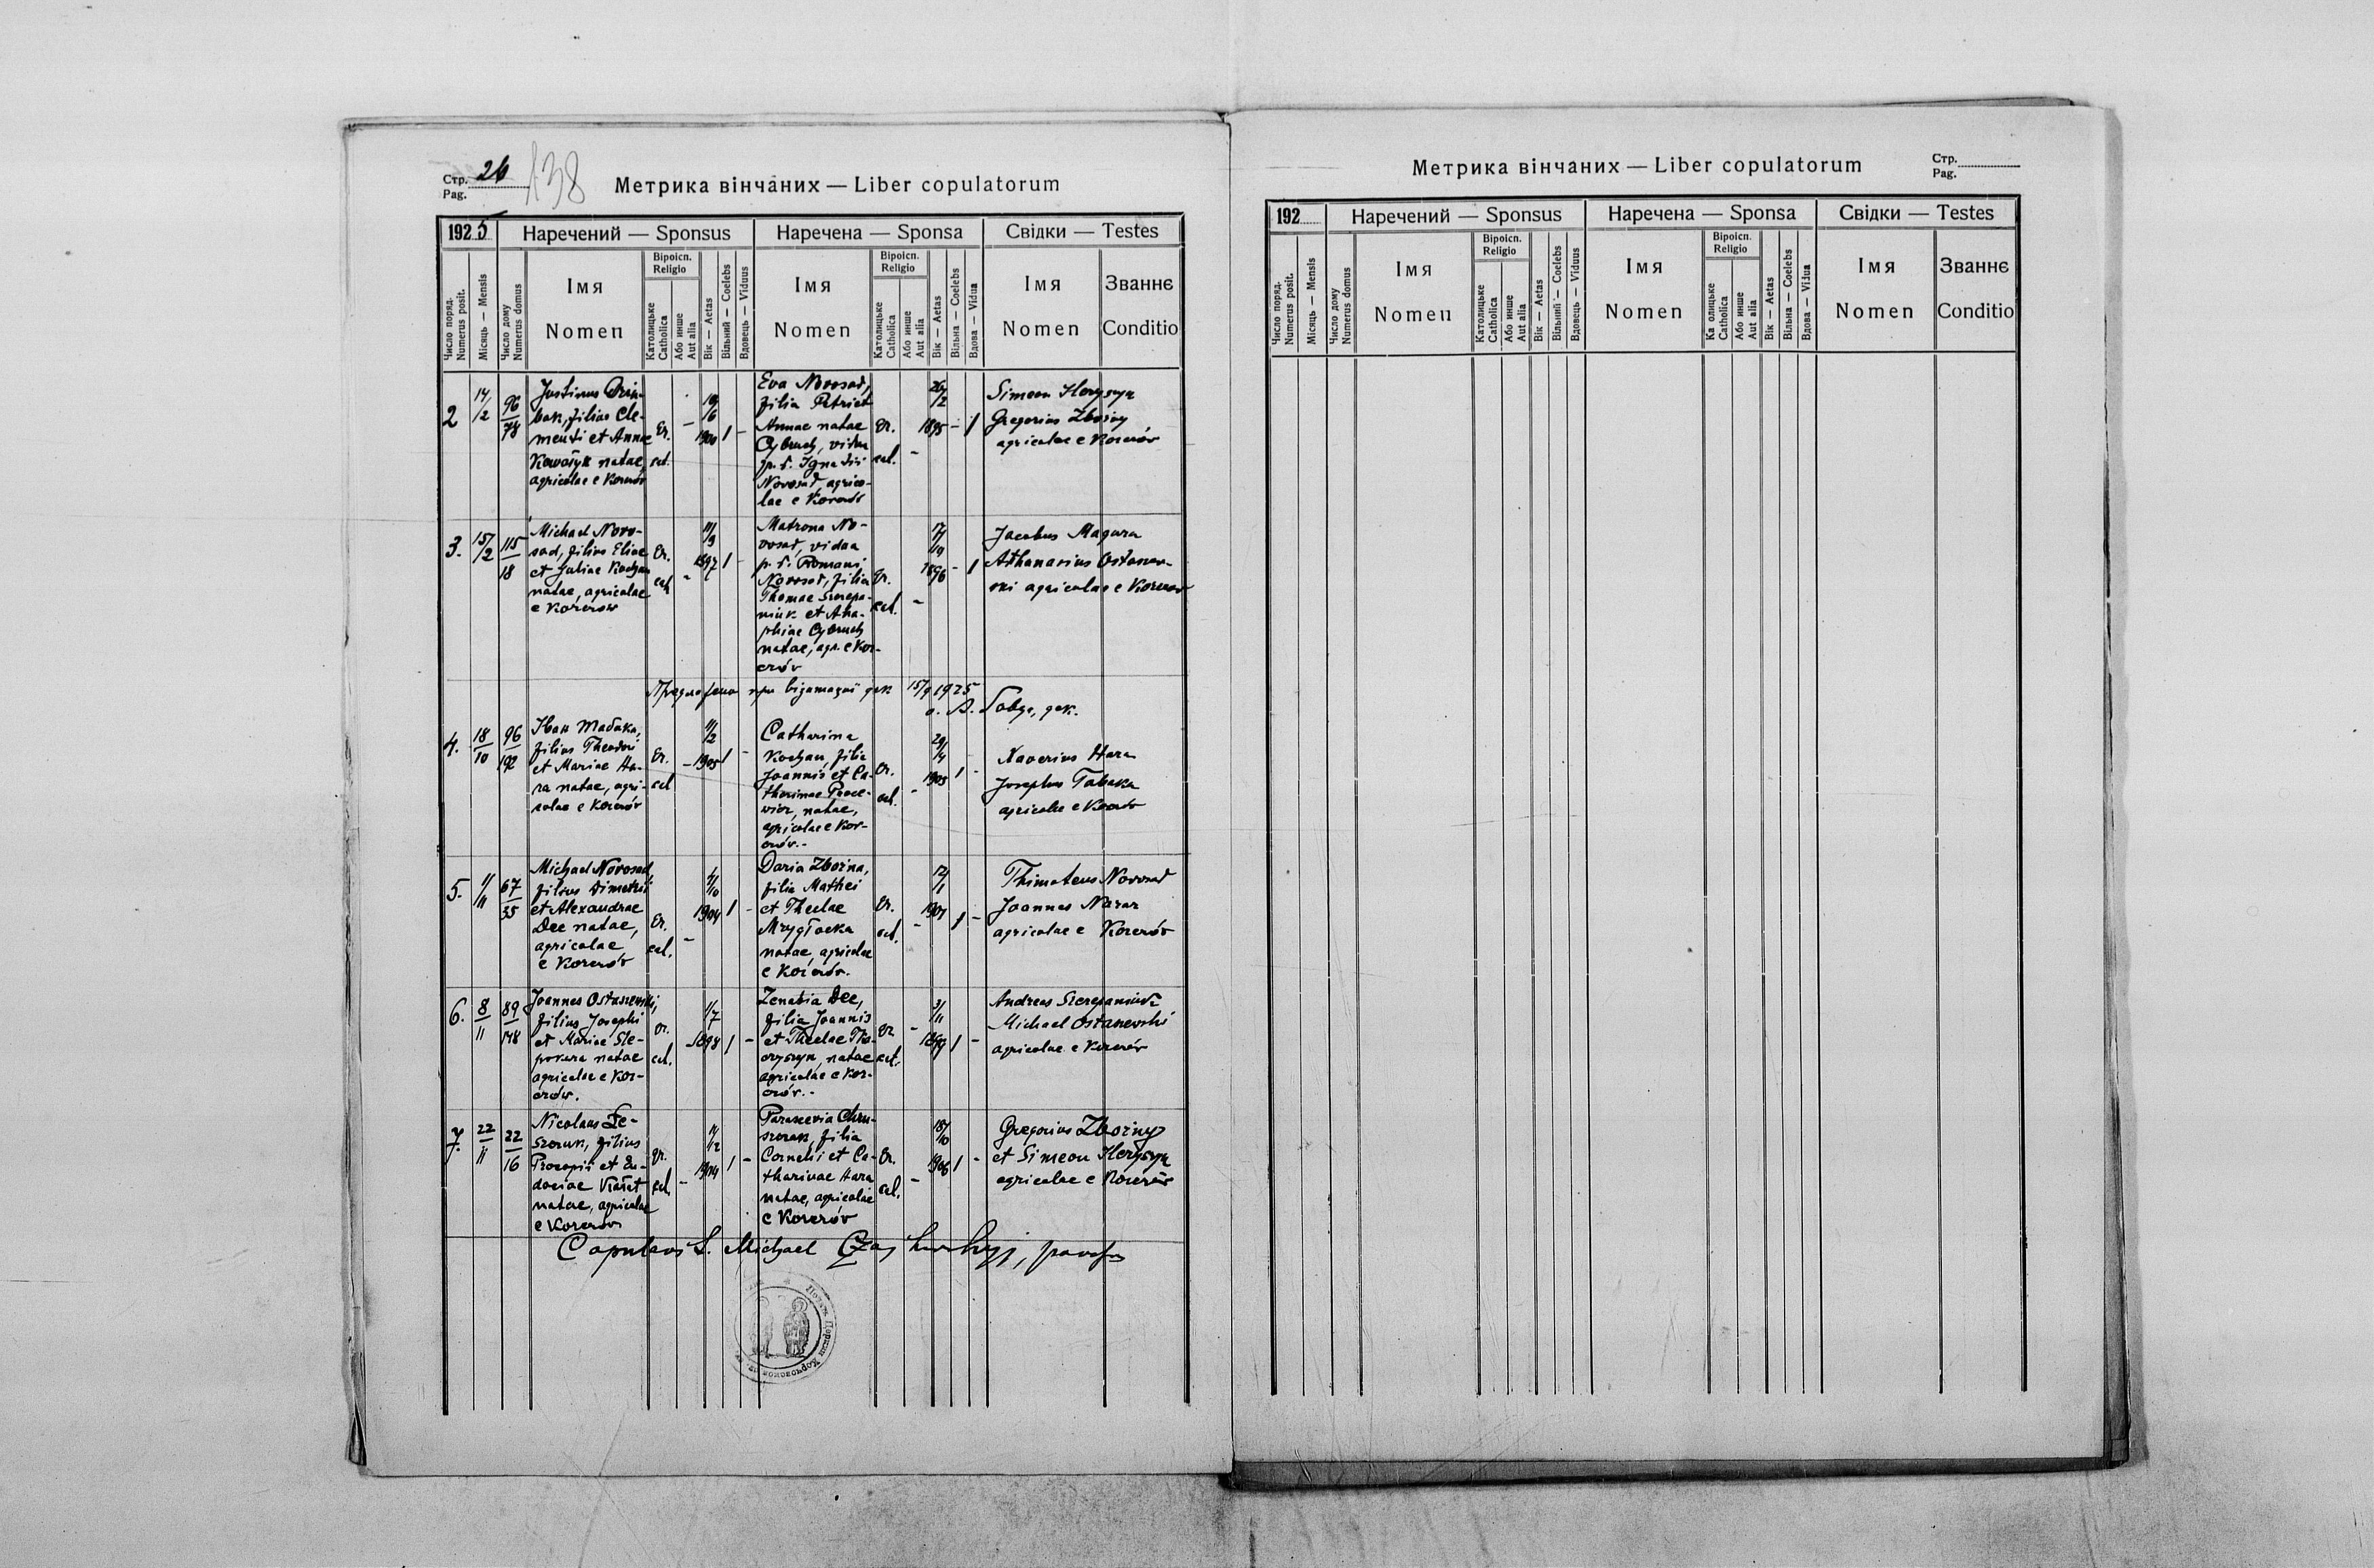 Стр. 26
Pag.
138
Метрика вінчаних — Liber copulatorum
1925
Наречений — Sponsus
Наречена — Sponsa
Свідки — Testes
Число поряд. Numerus posit.
Місяць — Mensis
Число дому Numerus domus
Імя Nomen
Віроісп. Religio
Католицьке Catholica
Або инше Aut alia
Вік — Aetas
Вільний — Coelebs
Вдовець — Viduus
Імя Nomen
Віроісп. Religio
Католицьке Catholica
Або инше Aut alia
Вік — Aetas
Вільна — Coelebs
Вдова — Vidua
Імя Nomen
Званнє Conditio
2
14/2
96/78
Justinus
filius Cle-
menti et Annae
natae,
agricolae e Korczów
gr. cat.
1900
1
Eva Novosad,
filia Petri et
Annae natae
Cybruch, vidua
p. d. Ignatii
Novosad, agrico-
lae e Korczów
gr. cat.
1895
1
Simeon Horyszyn
Gregorius Zboziny
agricolae e Korczów
3.
15/2
115/18
Michael Novo-
sad, filius Eliae
et Juliae Koczan
natae, agricolae
e Korczow
gr. cat.
11/9
1897
1
Matrona No-
vosad, vidua
p. d. Romani
Novosad, filia
Thomae Szczepa-
niuk et Aha-
phiae Cybruch
natae, agr. e Kor-
czów
gr. cat.
1896
1
Jacobus Magura
Athanasius Ostaszew-
ski agricolae e Korczów
при візитації дек. 15/9 1925
4.
18/10
96/192
Tabaka,
filius Theodori
et Mariae Ha-
ra natae, agri-
colae e Korczów
gr. cat.
11/2
1905
1
Catharina
Koczan, filia
Joannis et Ca-
tharinae
natae,
agricolae e Kor-
czów.-
gr. cat.
29/4
1905
1
Xaverius Hara
Josephus Tabaka
agricolae e Korczów
5.
11/11
67/35
Michael Novosad,
filius Dimetrii
et Alexandrae
Dec natae,
agricolae
e Korczów
gr. cat.
1904
1
Daria Zbożna,
filia Mathei
et Theclae
Mrygłocka
natae, agricolae
e Korczów.
gr. cat.
12/1
1
Thimoteus Novosad
Joannes Nazar
agricolae e Korczów
6.
8/11
89/148
Joannes Ostaszewski,
filius Josephi
et Mariae Sle-
powra natae
agricolae e Kor-
czów.
gr. cat.
1/7
1898
1
Zenobia Dec,
filia Joannis
et Theclae Ho-
ryszyn, natae
agricolae e Kor-
czów.-
gr. cat.
3/11
1899
1
Andreas Szczepaniuk
Michael Ostaszewski
agricolae e Korczów
7.
22/11
22/16
Nicolaus Le-
szczuk, filius
Procopii et Eu-
dociae
natae, agricolae
e Korczów
gr. cat.
1904
1
Parascevia Chru-
szczak, filia
Cornelii et Ca-
tharinae Hara
natae, agricolae
e Korczów
gr. cat.
18/10
1906
1
Gregorius Zboziny
et Simeon Horyszyn
agricolae e Korczów
Copulavi S. Michael
Метрика вінчаних — Liber copulatorum
Стр.
Pag.
192
Наречений — Sponsus
Наречена — Sponsa
Свідки — Testes
Число поряд. Numerus posit.
Місяць — Mensis
Число дому Numerus domus
Імя Nomen
Віроісп. Religio
Католицьке Catholica
Або инше Aut alia
Вік — Aetas
Вільний — Coelebs
Вдовець — Viduus
Імя Nomen
Віроісп. Religio
Ка олицьке Catholica
Або инше Aut alia
Вік — Aetas
Вільна — Coelebs
Вдова — Vidua
Імя Nomen
Званнє Conditio